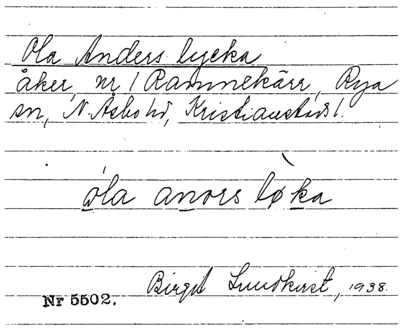 Ola Anders lycka
åker, nr 1 Rammekärr, Rya
sn, N. Åsbo hd, Kristianstads l.
óla anərs lỳka
Birgit Lundkvist, 1938.
Nr 5502.